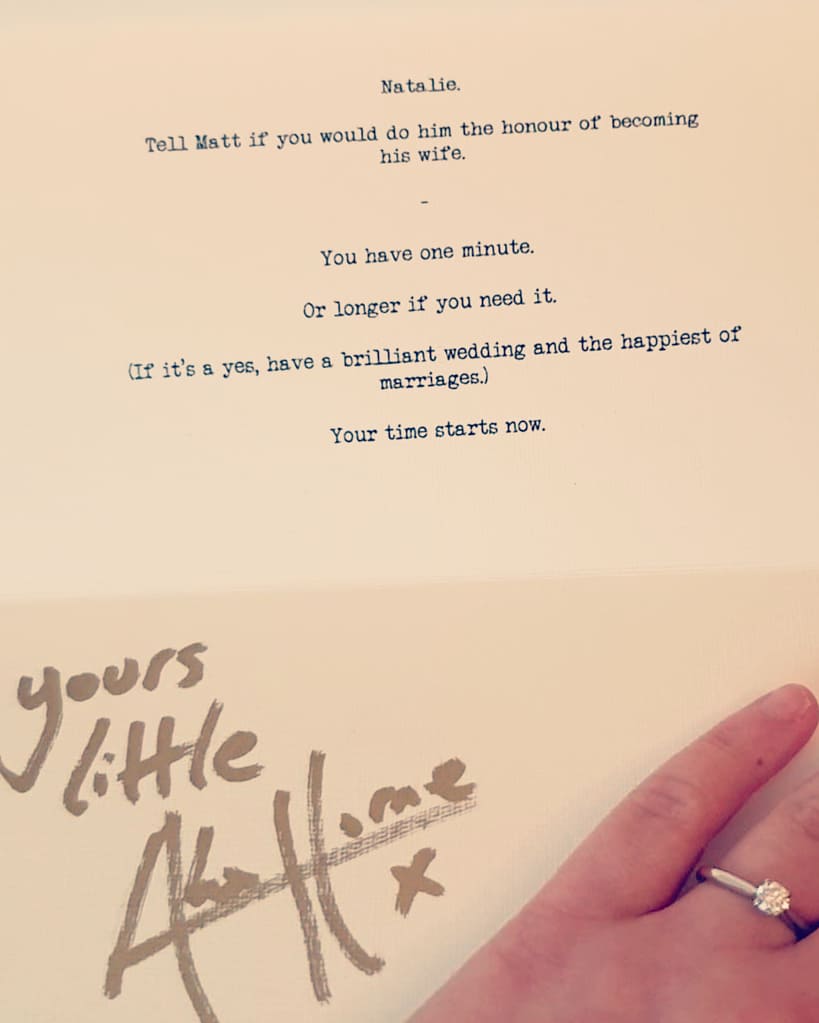 Natalie.
Tell Matt if you would do him the honour of becoming
his wife.
-
You have one minute.
Or longer if you need it.
(If it's a yes, have a brilliant wedding and the happiest of
marriages.)
Your time starts now.
yours
little
Alex Horne
x